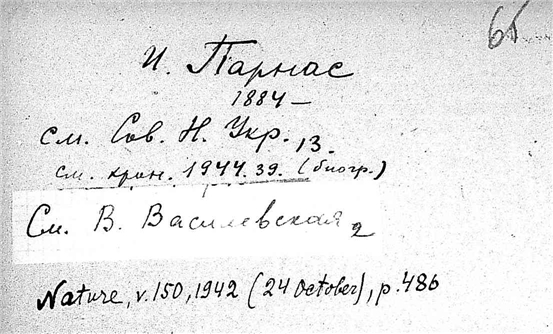 65
И. Парнас
1884 —
см. Сов. Н. Укр., 13.
см. хрон. 1944. 39. (биогр.)
См. В. Василевская 2
Nature, v. 150, 1942 (24 October), p. 486